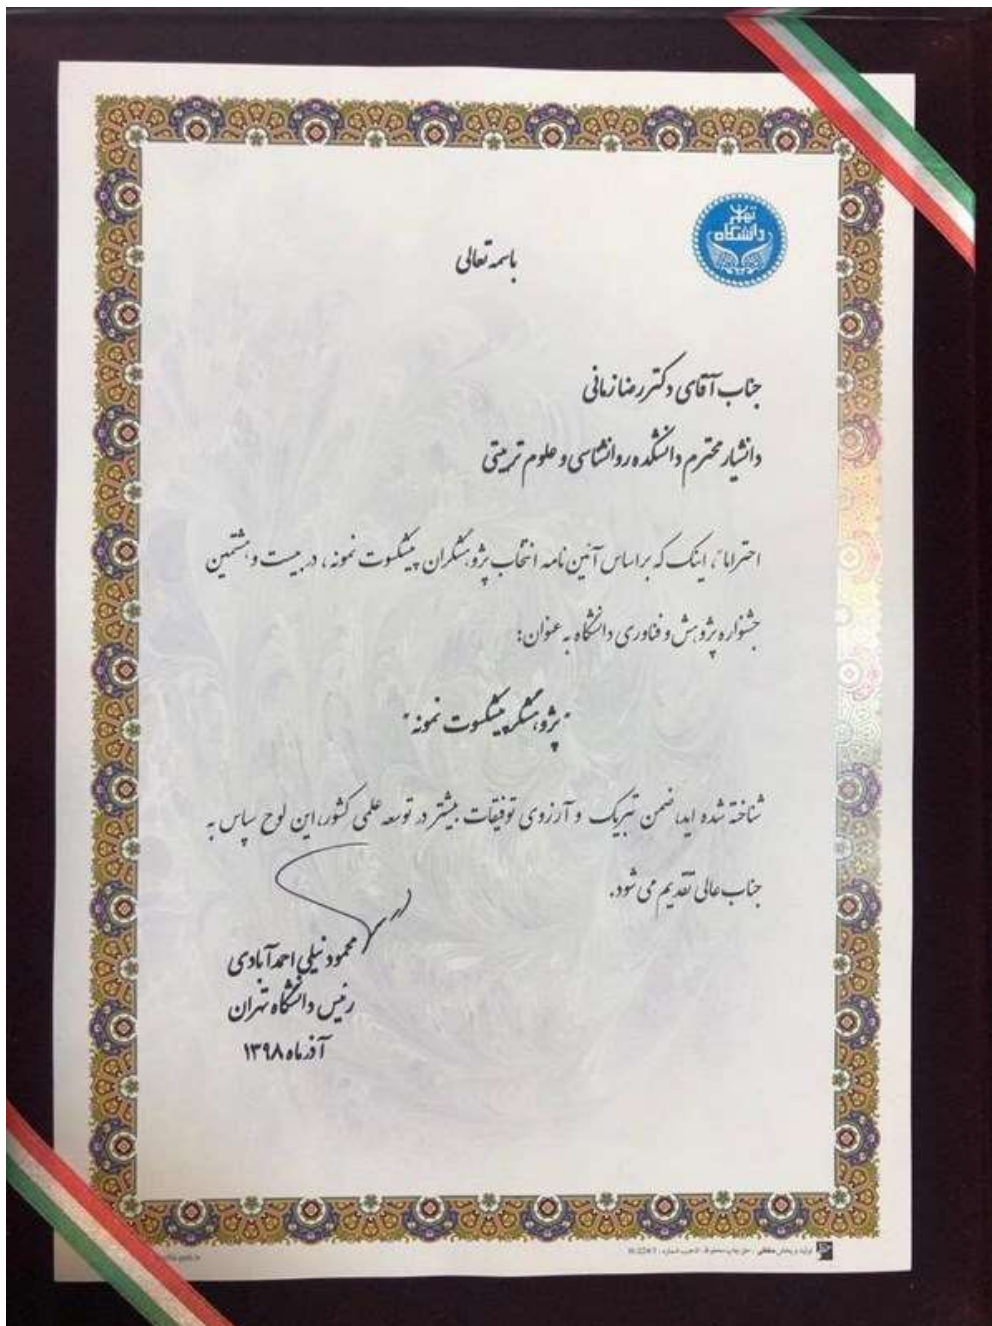 دانشگاه
تهران
باسمه تعالی
جناب آقای دکتر رضا زمانی
دانشیار محترم دانشکده روانشناسی و علوم تربیتی
احتراماً، اینک که براساس آئین نامه انتخاب پژوهشگران پیشکسوت نمونه، در بیست و هشتمین
جشنواره پژوهش و فناوری دانشگاه به عنوان:
"پژوهشگر پیشکسوت نمونه"
شناخته شده اید، ضمن تبریک و آرزوی توفیقات بیشتر در توسعه علمی کشور، این لوح سپاس به
جناب عالی تقدیم می شود.
محمود نیلی احمدآبادی
رئیس دانشگاه تهران
آذر ماه ۱۳۹۸
تولید و پخش